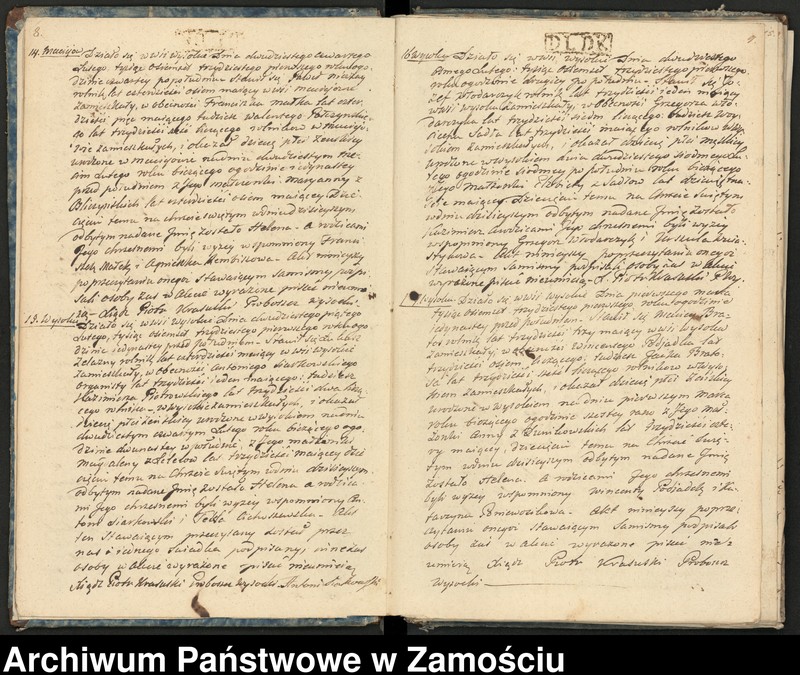 8.
14. Działo się w wsi Wysokie Dnia dwudziestego czwartego
Lutego, tysiąc ośmset trzydziestego pierwszego roku o go-
dzinie czwartey popołudniu Stawił się
rolnik lat czterdzieści ośm maiący w wsi
zamieszkały, w obecności Franciszka lat czter-
dzieści pięć maiącego tudzież Walentego
go lat trzydzieści sześć liczącego rolników w
zamieszkałych, i okazał dziecię płci żeńskiey
urodzone w na dniu dwudziestym
Lutego roku bieżącego o godzinie iedynastey
przed południem z Jego małżonki Maryanny z
lat czterdzieści ośm maiącey Dzie-
cięciu temu na chrzcie świętym w dniu dzisieyszym
odbytym nadane Imię zostało Helena. a rodzicami
Jego chrzestnemi byli wyżey wspomniony Franci-
szek i Agnieszka. Akt ninieyszy
po przeczytaniu onegoż Stawaiącym Samiśmy podpi-
sali osoby zaś w akcie wyrażone pisać nieumie-
ią. Xiądz Piotr Krasuski Proboszcz
15. Wysokie
Działo się w wsi Wysokie Dnia dwudziestego piątego
Lutego, tysiąc ośmset trzydziestego pierwszego roku o go-
dzinie iedynastey przed południem. Stawił się Łukasz
Żelazny rolnik lat czterdzieści maiący w wsi Wysokie
zamieszkały, w obecności Antoniego Siarkowskiego
organisty lat trzydzieści ieden maiącego; tudzież
Kazimierza Piotrowskiego lat trzydzieści dwa liczą-
cego rolnika w Wysokie zamieszkałych, i okazał
dziecię płci żeńskiey urodzone w Wysokiem na dniu
dwudziestym czwartym Lutego roku bieżącego o go-
dzinie dwunastey w z Jego małżonki
Magdaleny z lat trzydzieści maiącey dzie-
cięciu temu na Chrzcie Świętym w dniu dzisieyszym
odbytym nadane Imię zostało Helena a rodzica-
mi Jego chrzestnemi byli wyżey wspomniony An-
toni Siarkowski i Tekla. Akt
ten Stawaiącym przeczytany został przez
nas i iednego świadka podpisany, inne zaś
osoby w akcie wyrażone pisać nieumieią
Xiądz Piotr Krasuski Proboszcz Wysocki Antoni Siarkowski
DLDK
9
16 Wysokie
Działo się w wsi Wysokie Dnia dwudziestego
ósmego Lutego tysiąc ośmset trzydziestego pierwszego
roku o godzinie po południu. Stawił się Jó-
zef Włodarczyk rolnik lat trzydzieści ieden maiący
w wsi Wysokie zamieszkały, w obecności Grzegorza Wło-
darczyka lat trzydzieści siedm liczącego tudzież Woy-
ciecha Sadla lat trzydzieści maiącego rolników w Wy-
sokiem zamieszkałych, i okazał dziecię płci męskiey
urodzone w Wysokiem dnia dwudziestego siódmego Lu-
tego o godzinie siódmey po południu roku bieżącego
z Jego Małżonki Elżbiety z Sadlów lat dziewiętna-
ście maiącey. Dziecięciu temu na Chrzcie Świętym
w dniu dzisieyszym odbytym nadane Imię zostało
Kazimierz a rodzicami Jego chrzestnemi byli wyżey
wspomniony Grzegorz Włodarczyk i Urszula
Akt ninieyszy po przeczytaniu onegoż
Stawaiącym Samiśmy podpisali osoby zaś w akcie
wyrażone pisać nieumieią. X. Piotr Krasuski
17 Wysokie
Działo się w wsi Wysokie Dnia pierwszego marca
tysiąc ośmset trzydziestego pierwszego roku o godzinie
iedynastey przed południem. Stawił się
rolnik lat trzydzieści trzy maiący w wsi Wysokie
zamieszkały; w obecności Wincentego Pobjadka lat
trzydzieści ośm liczącego; tudzież Jacka
lat trzydzieści sześć liczącego rolników w Wyso-
kiem zamieszkałych, i okazał dziecię płci żeńskiey
urodzone w Wysokiem na dniu pierwszym Marca
roku bieżącego o godzinie szóstey rano z Jego mał-
żonki Anny z lat trzydzieści czte-
ry maiącey, dziecięciu temu na Chrzcie Świę-
tym w dniu dzisieyszym odbytym nadane Imię
zostało Helena. a rodzicami Jego chrzestnemi
byli wyżey wspomniony Wincenty Pobjadek i Ka-
tarzyna. Akt ninieyszy po prze-
czytaniu onegoż Stawaiącym Samiśmy podpisali
osoby zaś w akcie wyrażone pisać nie-
umieią Xiądz Piotr Krasuski Proboszcz
Wysocki
Archiwum Państwowe w Zamościu